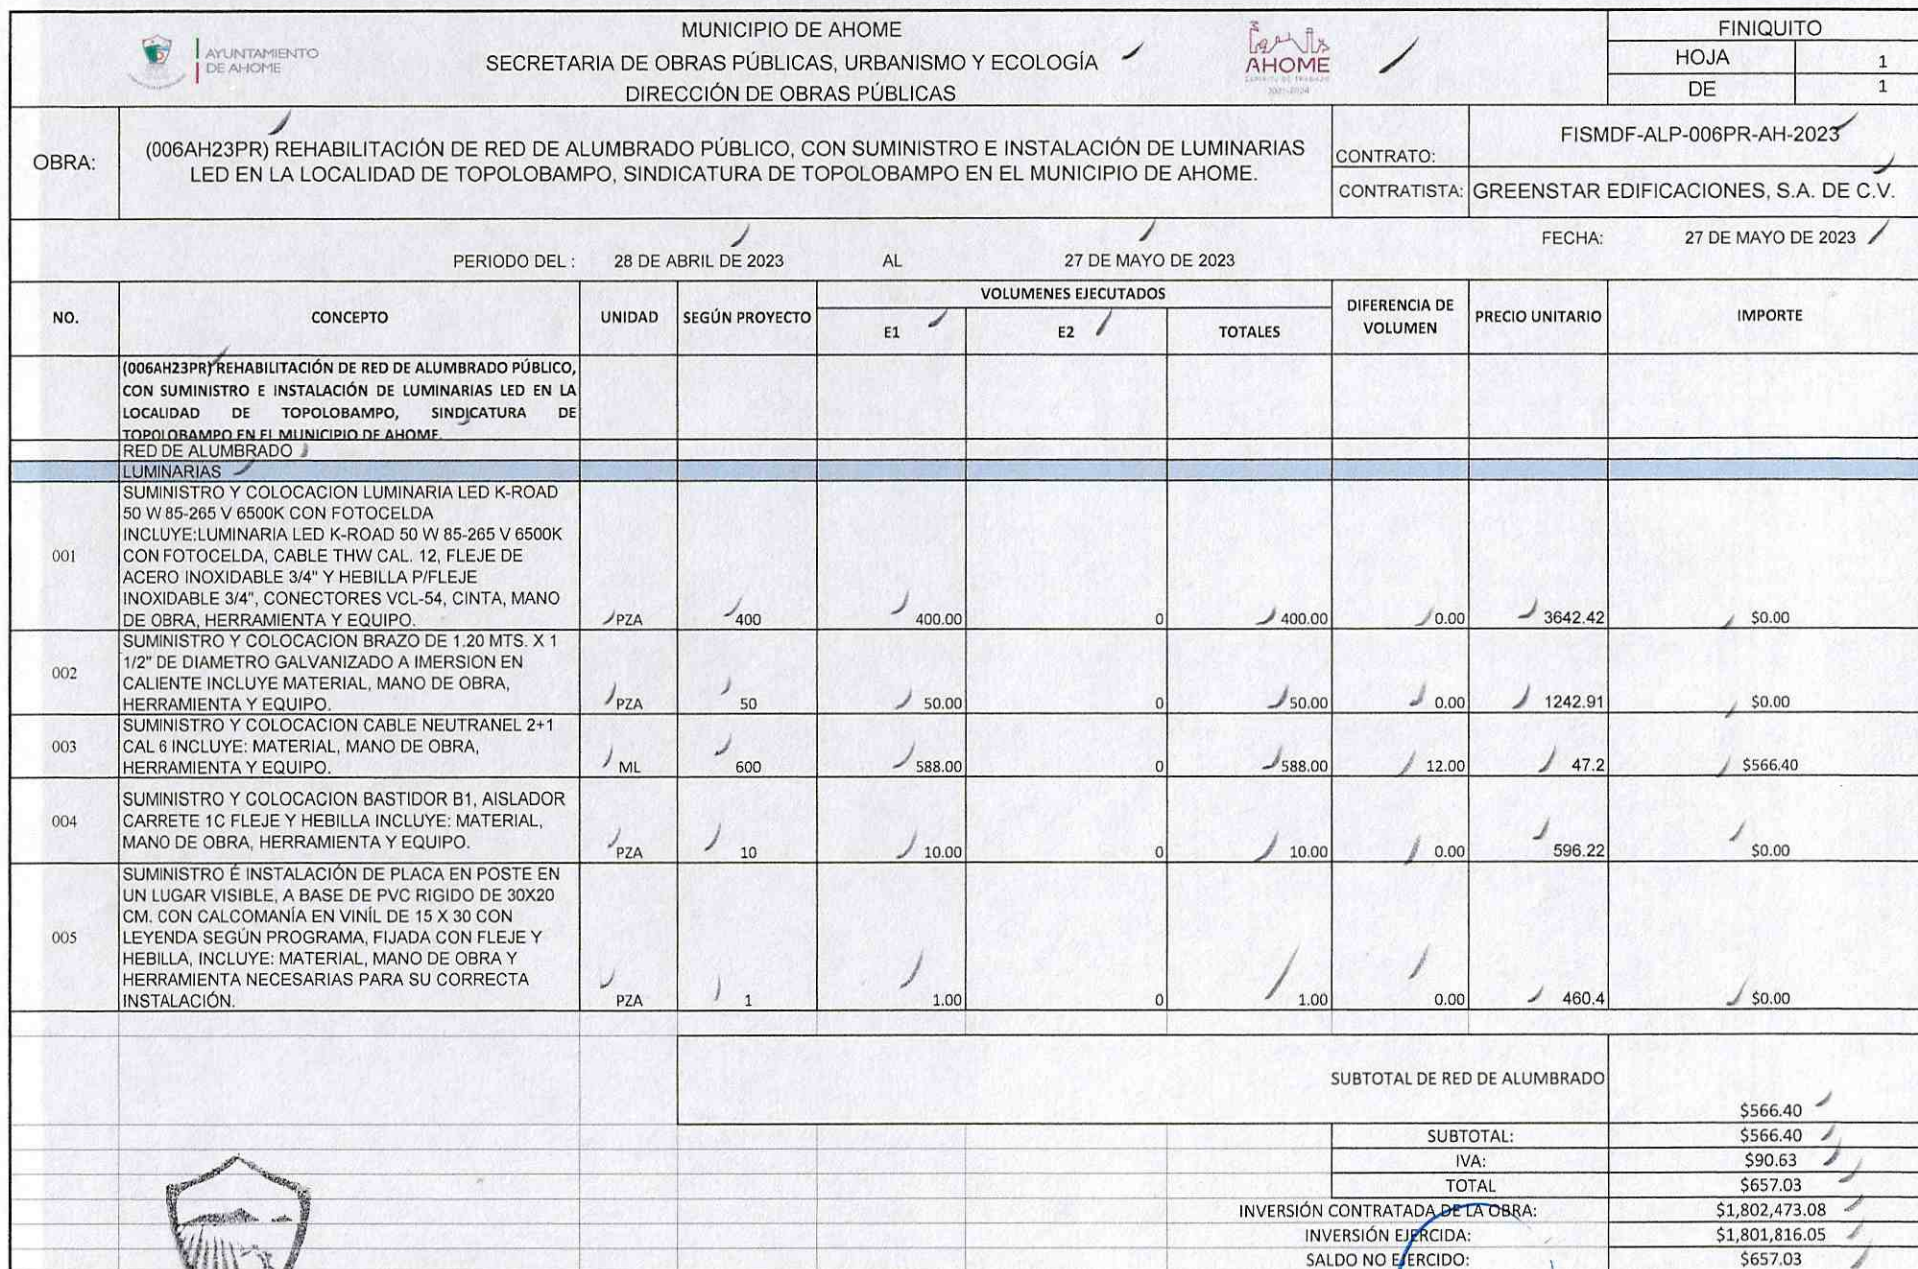 AYUNTAMIENTO
DE AHOME
MUNICIPIO DE AHOME
SECRETARIA DE OBRAS PÚBLICAS, URBANISMO Y ECOLOGÍA
DIRECCIÓN DE OBRAS PÚBLICAS
AHOME
2021-2024
FINIQUITO
HOJA 1
DE 1
OBRA:
(006AH23PR) REHABILITACIÓN DE RED DE ALUMBRADO PÚBLICO, CON SUMINISTRO E INSTALACIÓN DE LUMINARIAS
LED EN LA LOCALIDAD DE TOPOLOBAMPO, SINDICATURA DE TOPOLOBAMPO EN EL MUNICIPIO DE AHOME.
CONTRATO: FISMDF-ALP-006PR-AH-2023
CONTRATISTA: GREENSTAR EDIFICACIONES, S.A. DE C.V.
FECHA: 27 DE MAYO DE 2023
PERIODO DEL : 28 DE ABRIL DE 2023 AL 27 DE MAYO DE 2023
NO. CONCEPTO UNIDAD SEGÚN PROYECTO VOLUMENES EJECUTADOS DIFERENCIA DE VOLUMEN PRECIO UNITARIO IMPORTE
E1 E2 TOTALES
(006AH23PR) REHABILITACIÓN DE RED DE ALUMBRADO PÚBLICO,
CON SUMINISTRO E INSTALACIÓN DE LUMINARIAS LED EN LA
LOCALIDAD DE TOPOLOBAMPO, SINDICATURA DE
TOPOLOBAMPO EN EL MUNICIPIO DE AHOME.
RED DE ALUMBRADO
LUMINARIAS
001
SUMINISTRO Y COLOCACION LUMINARIA LED K-ROAD
50 W 85-265 V 6500K CON FOTOCELDA
INCLUYE:LUMINARIA LED K-ROAD 50 W 85-265 V 6500K
CON FOTOCELDA, CABLE THW CAL. 12, FLEJE DE
ACERO INOXIDABLE 3/4" Y HEBILLA P/FLEJE
INOXIDABLE 3/4", CONECTORES VCL-54, CINTA, MANO
DE OBRA, HERRAMIENTA Y EQUIPO. PZA 400 400.00 0 400.00 0.00 3642.42 $0.00
002
SUMINISTRO Y COLOCACION BRAZO DE 1.20 MTS. X 1
1/2" DE DIAMETRO GALVANIZADO A IMERSION EN
CALIENTE INCLUYE MATERIAL, MANO DE OBRA,
HERRAMIENTA Y EQUIPO. PZA 50 50.00 0 50.00 0.00 1242.91 $0.00
003
SUMINISTRO Y COLOCACION CABLE NEUTRANEL 2+1
CAL 6 INCLUYE: MATERIAL, MANO DE OBRA,
HERRAMIENTA Y EQUIPO. ML 600 588.00 0 588.00 12.00 47.2 $566.40
004
SUMINISTRO Y COLOCACION BASTIDOR B1, AISLADOR
CARRETE 1C FLEJE Y HEBILLA INCLUYE: MATERIAL,
MANO DE OBRA, HERRAMIENTA Y EQUIPO. PZA 10 10.00 0 10.00 0.00 596.22 $0.00
005
SUMINISTRO É INSTALACIÓN DE PLACA EN POSTE EN
UN LUGAR VISIBLE, A BASE DE PVC RIGIDO DE 30X20
CM. CON CALCOMANÍA EN VINÍL DE 15 X 30 CON
LEYENDA SEGÚN PROGRAMA, FIJADA CON FLEJE Y
HEBILLA, INCLUYE: MATERIAL, MANO DE OBRA Y
HERRAMIENTA NECESARIAS PARA SU CORRECTA
INSTALACIÓN. PZA 1 1.00 0 1.00 0.00 460.4 $0.00
SUBTOTAL DE RED DE ALUMBRADO $566.40
SUBTOTAL: $566.40
IVA: $90.63
TOTAL $657.03
INVERSIÓN CONTRATADA DE LA OBRA: $1,802,473.08
INVERSIÓN EJERCIDA: $1,801,816.05
SALDO NO EJERCIDO: $657.03